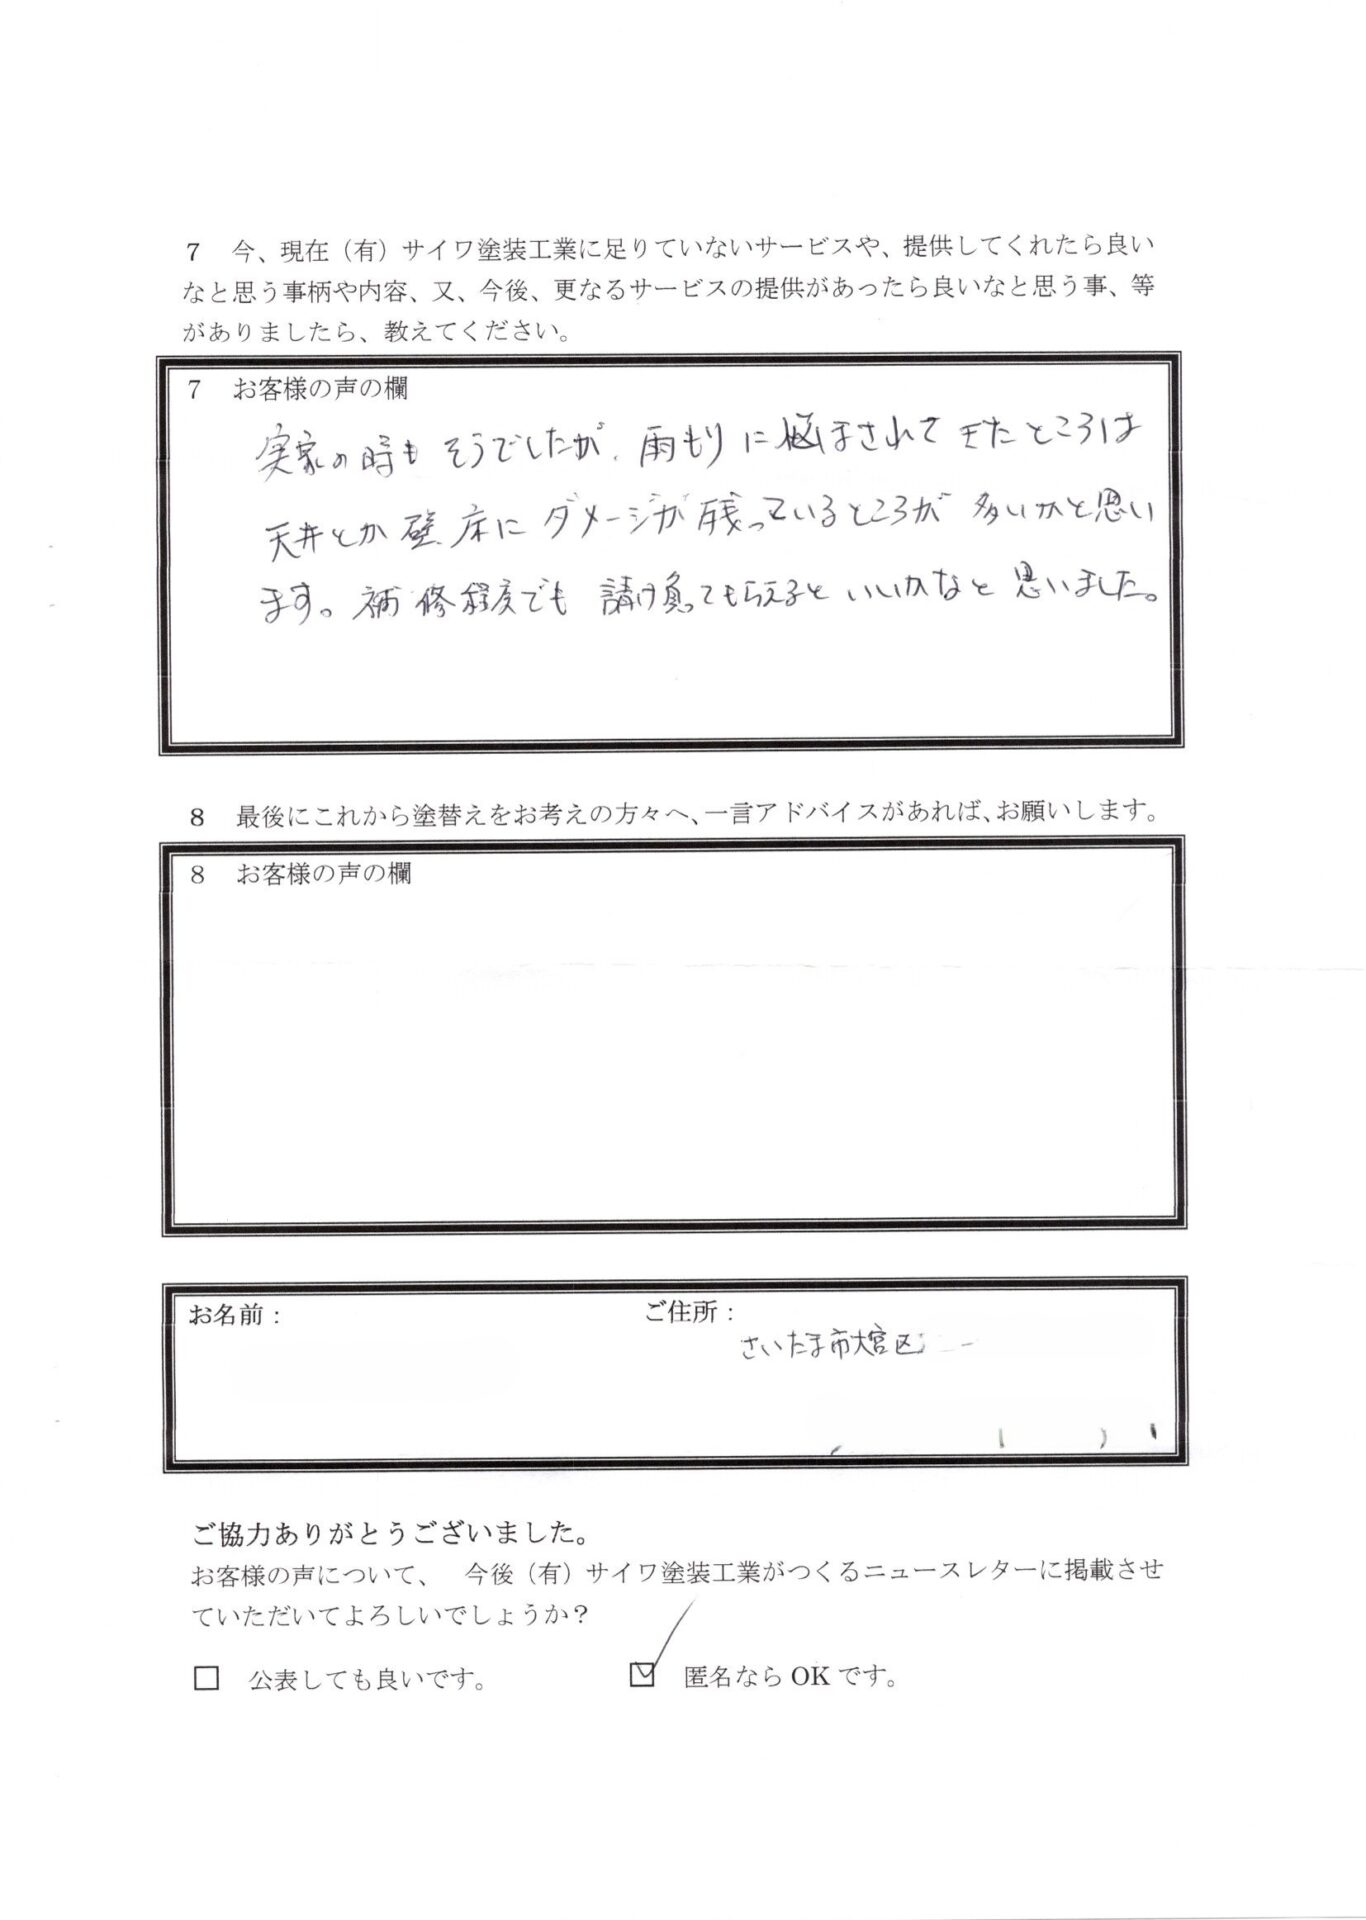 7 今、現在（有）サイワ塗装工業に足りていないサービスや、提供してくれたら良い
なと思う事柄や内容、又、今後、更なるサービスの提供があったら良いなと思う事、等
がありましたら、教えてください。
7 お客様の声の欄
実家の時もそうでしたが、雨もりに悩まされてきたところは
天井とか壁、床にダメージが残っているところが多いかと思い
ます。補修程度でも請け負ってもらえるといいかなと思いました。
8 最後にこれから塗替えをお考えの方々へ、一言アドバイスがあれば、お願いします。
8 お客様の声の欄
お名前： ご住所：
さいたま市大宮区
ご協力ありがとうございました。
お客様の声について、 今後（有）サイワ塗装工業がつくるニュースレターに掲載させ
ていただいてよろしいでしょうか？
□ 公表しても良いです。 ☑ 匿名なら OK です。